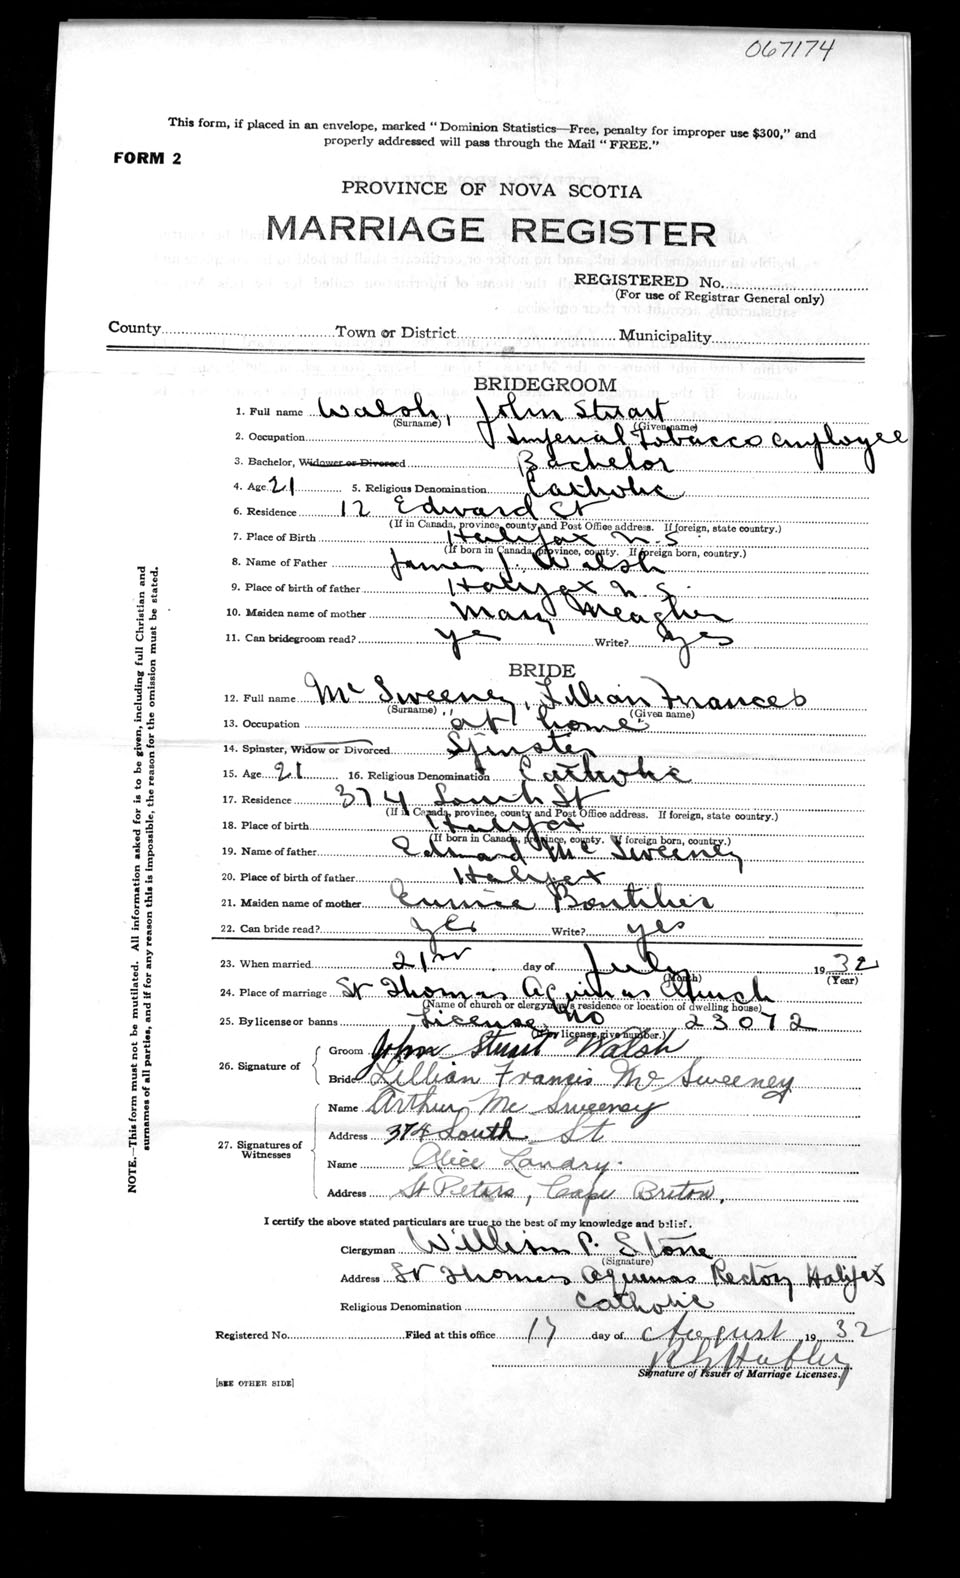 067174
This form, if placed in an envelope, marked "Dominion Statistics—Free, penalty for improper use $300," and
properly addressed will pass through the Mail "FREE."
FORM 2
PROVINCE OF NOVA SCOTIA
MARRIAGE REGISTER
REGISTERED No.
(For use of Registrar General only)
County Town or District Municipality
BRIDEGROOM
1. Full name Walsh, John Stuart
(Surname) (Given name)
2. Occupation Imperial Tobacco employee
3. Bachelor, Widower or Divorced Bachelor
4. Age 21 5. Religious Denomination Catholic
6. Residence 12 Edward St
(If in Canada, province, county and Post Office address. If foreign, state country.)
7. Place of Birth Halifax N.S.
(If born in Canada, province, county. If foreign born, country.)
8. Name of Father James J. Walsh
9. Place of birth of father Halifax N.S.
10. Maiden name of mother Mary Meagher
11. Can bridegroom read? yes Write? yes
BRIDE
12. Full name McSweeney, Lillian Frances
(Surname) (Given name)
13. Occupation "at home"
14. Spinster, Widow or Divorced Spinster
15. Age 21 16. Religious Denomination Catholic
17. Residence 374 South St
(If in Canada, province, county and Post Office address. If foreign, state country.)
18. Place of birth Halifax
(If born in Canada, province, county. If foreign born, country.)
19. Name of father Edward McSweeney
20. Place of birth of father Halifax
21. Maiden name of mother Eunice Boutilier
22. Can bride read? yes Write? yes
23. When married 21st day of July 1932
(Month) (Year)
24. Place of marriage St Thomas Aquinas Church
(Name of church or clergyman's residence or location of dwelling house)
25. By license or banns License No 23072
(If by license, give number.)
26. Signature of
Groom John Stuart Walsh
Bride Lillian Francis McSweeney
27. Signatures of Witnesses
Name Arthur McSweeney
Address 374 South St
Name Alice Landry.
Address St Peters, Cape Briton,
I certify the above stated particulars are true to the best of my knowledge and belief.
Clergyman William P. Stone
(Signature)
Address St Thomas Aquinas Rectory Halifax
Religious Denomination Catholic
Registered No. Filed at this office 17 day of August 1932
Signature of Issuer of Marriage Licenses.
[SEE OTHER SIDE]
NOTE.—This form must not be mutilated. All information asked for is to be given, including full Christian and
surnames of all parties, and if for any reason this is impossible, the reason for the omission must be stated.